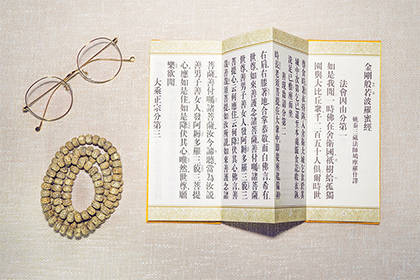 金剛般若波羅蜜經
姚秦三藏法師鳩摩羅什譯
法會因由分第一
如是我聞一時佛在舍衛國祇樹給孤獨
園與大比丘眾千二百五十人俱爾時世
尊食時著衣持鉢入舍衛大城乞食於其
城中次第乞已還至本處飯食訖收衣鉢
洗足已敷座而坐
善現啟請分第二
時長老須菩提在大眾中即從座起偏袒
右肩右膝著地合掌恭敬而白佛言希有
世尊如來善護念諸菩薩善付囑諸菩薩
世尊善男子善女人發阿耨多羅三藐三
菩提心云何應住云何降伏其心佛言善
哉善哉須菩提如汝所說如來善護念諸
菩薩善付囑諸菩薩汝今諦聽當為汝說
善男子善女人發阿耨多羅三藐三菩提
心應如是住如是降伏其心唯然世尊願
樂欲聞
大乘正宗分第三